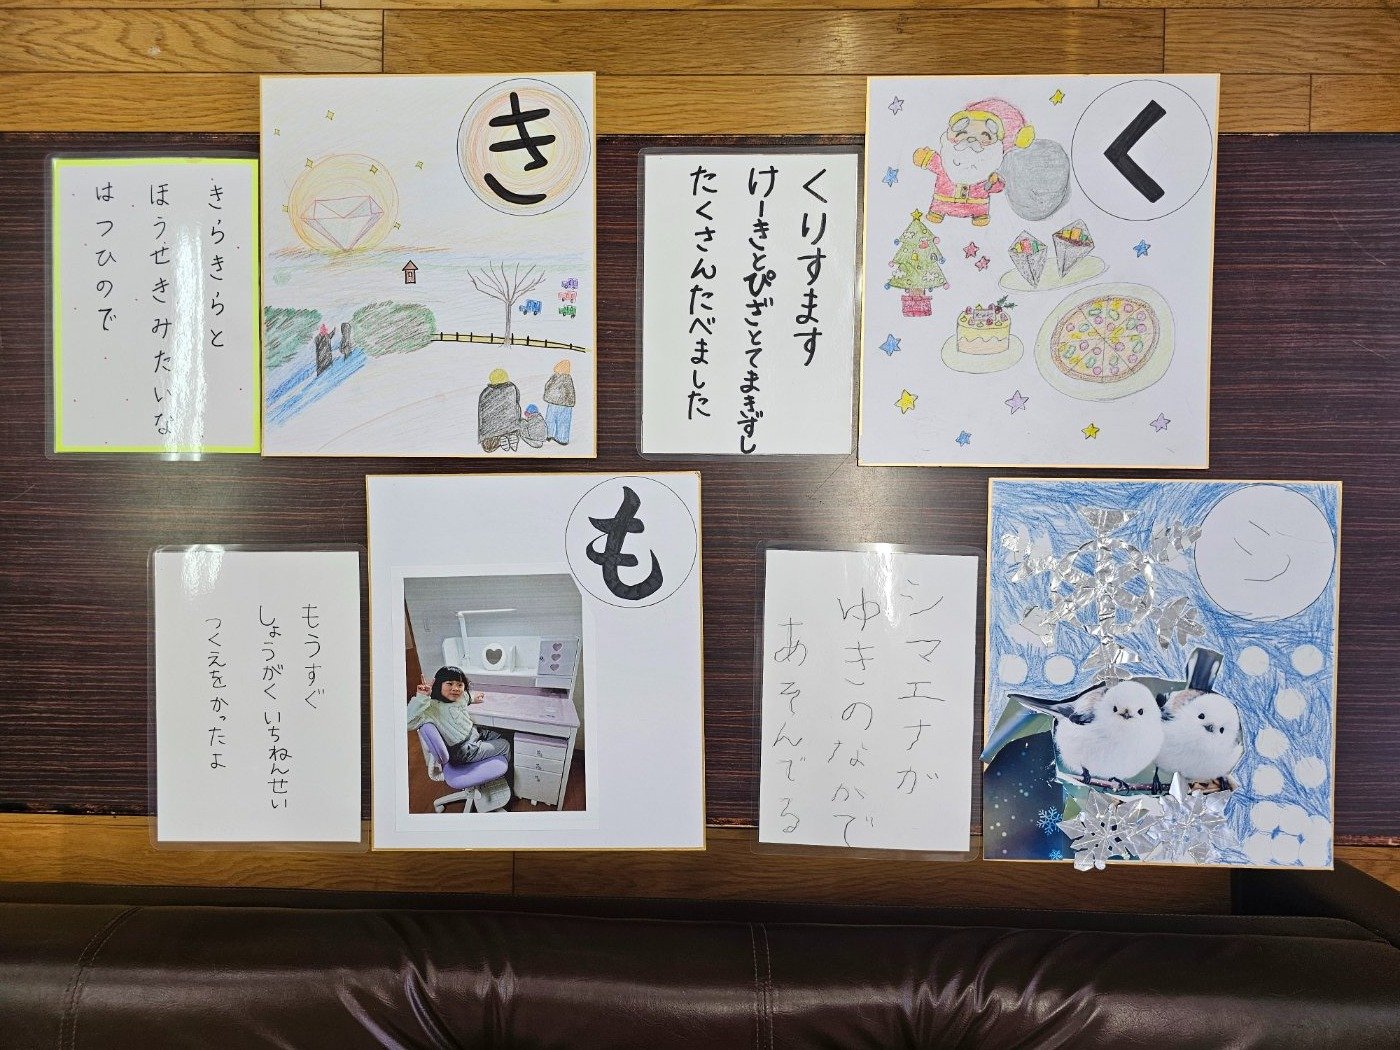 きらきらと
ほうせきみたいな
はつひので
き
くりすます
けーきとぴざとてまきずし
たくさんたべました
く
もうすぐ
しょうがくいちねんせい
つくえをかったよ
も
シマエナガ
ゆきのなかで
あそんでる
し